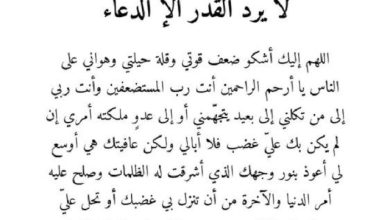 لا يرد القدر الإ الدعاء
اللهم إليك أشكو ضعف قوتي وقلة حيلتي وهواني على
الناس يا أرحم الراحمين أنت رب المستضعفين وأنت ربي
إلى من تكلني إلى بعيد يتجهّمني أو إلى عدوٍ ملكته أمري إن
لم يكن بك عليّ غضب فلا أبالي ولكن عافيتك هي أوسع
لي أعوذ بنور وجهك الذي أشرقت له الظلمات وصلح عليه
أمر الدنيا والآخرة من أن تنزل بي غضبك أو تحل عليّ